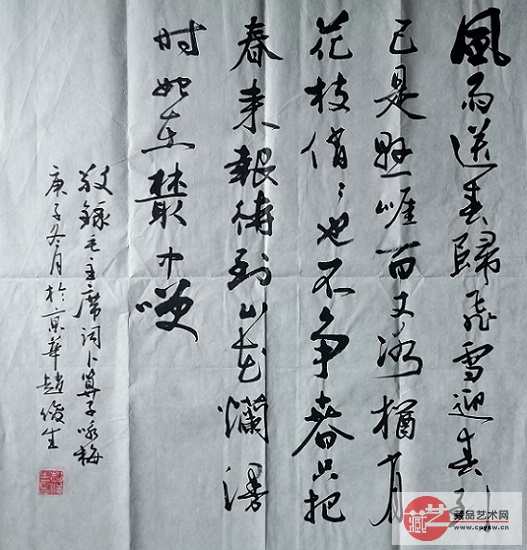 風雨送春歸飛雪迎春到
已是懸崖百丈冰猶有
花枝俏俏也不争春只把
春来報待到山花爛漫
时她在叢中笑
敬録毛主席词卜算子咏梅
庚子冬月於京華趙俊生
藏艺
藏品艺术网